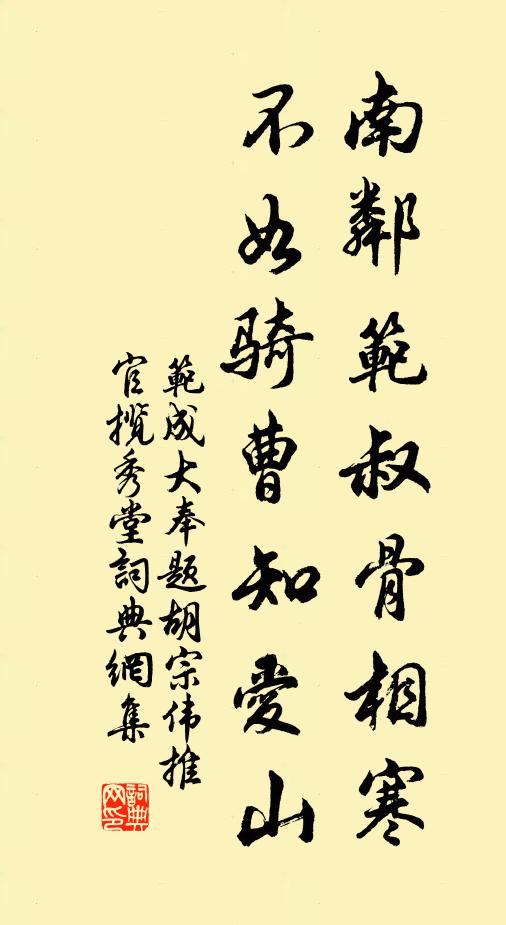 南鄰範叔骨相寒
不如骑曹知愛山
範成大奉题胡宗伟推
官攬秀堂詞典網集
詞典
网印